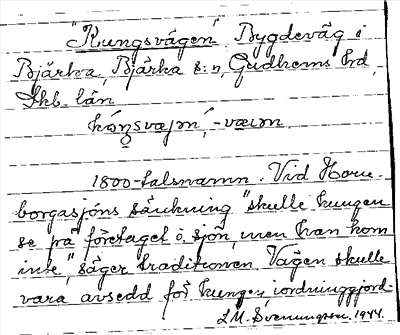 "Kungsvägen" Bygdeväg i
Bjärka, Bjärka s:n, Gudhems hd,
Skb. län
1800-talsnamn. Vid Horn-
borgasjöns sänkning "skulle kungen
se på företaget o. sjön, men han kom
inte", säger traditionen. Vägen skulle
vara avsedd för kungen, iordninggjord.
Svenungsson. 1944.